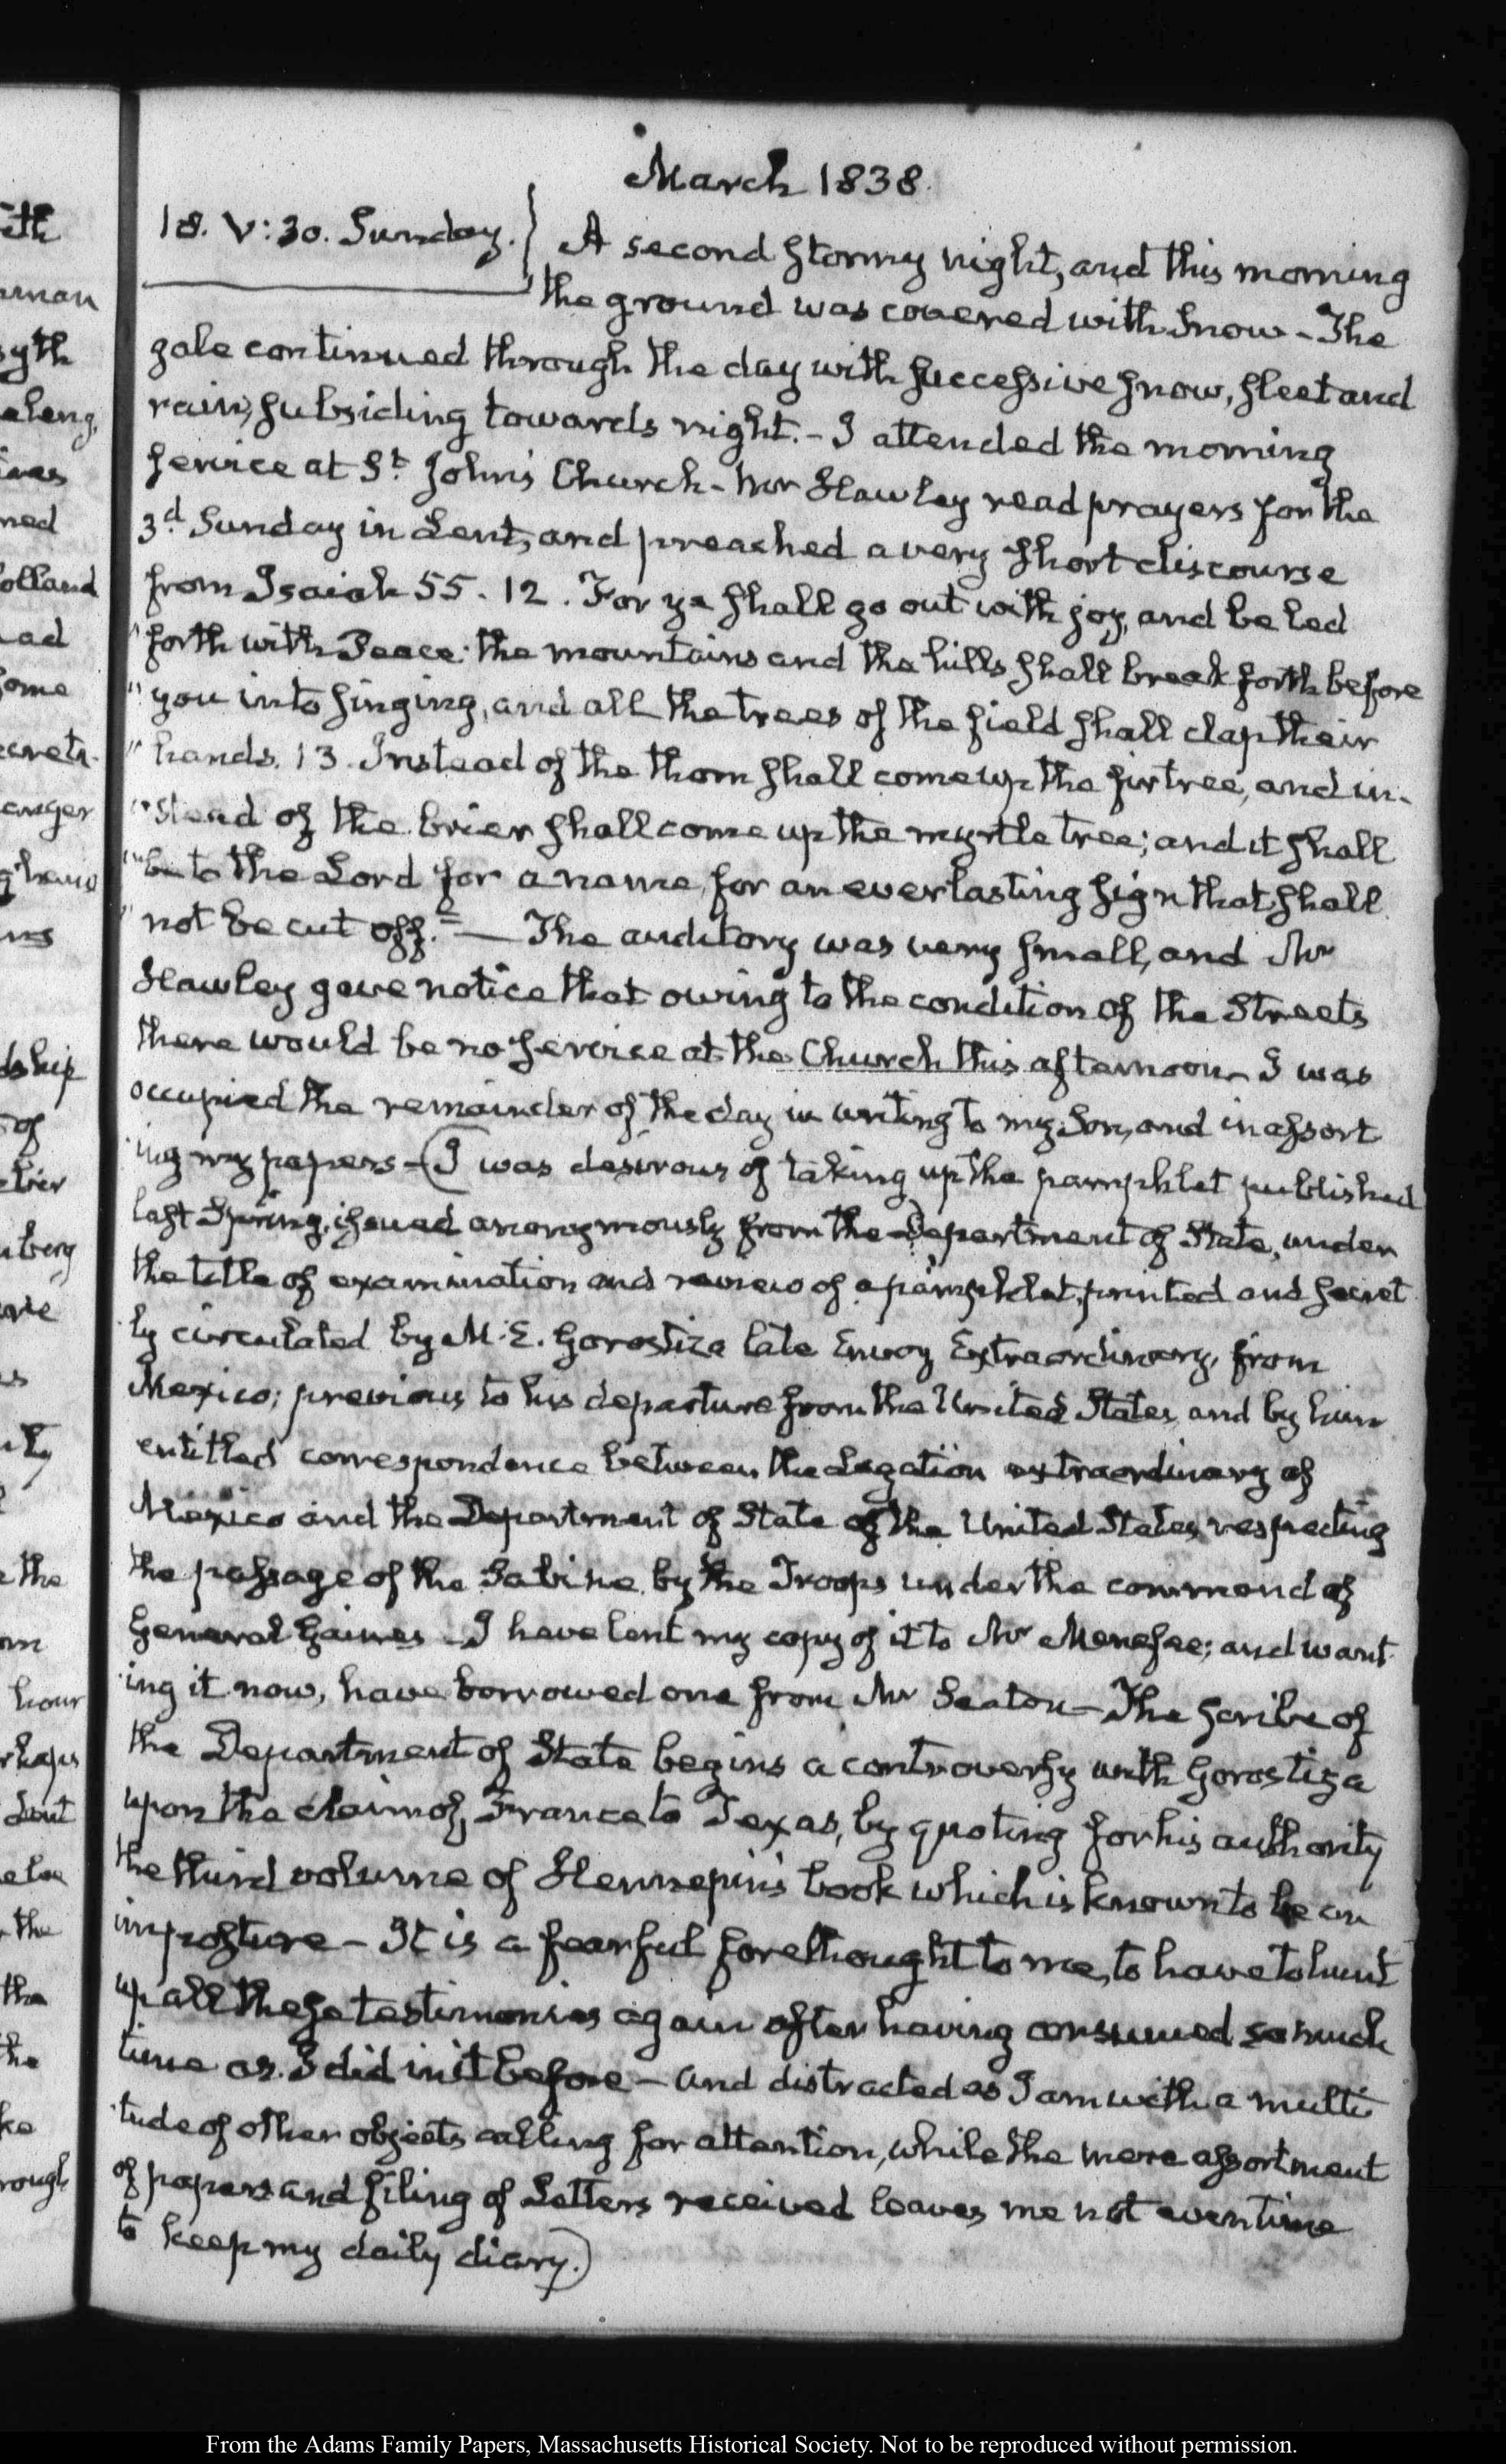 March 1838.
18. V:30. Sunday. A second stormy night, and this morning
the ground was covered with snow - The
gale continued through the day with successive snow, sleet and
rain, subsiding towards night. - I attended the morning
service at St. John's Church - Mr Hawley read prayers for the
3d. Sunday in Lent, and preached a very short discourse
from Isaiah 55. 12. For ye shall go out with joy, and be led
" forth with Peace: the mountains and the hills shall break forth before
" you into singing, and all the trees of the field shall clap their
" hands. 13. Instead of the thorn shall come up the fir tree, and in-
" stead of the brier shall come up the myrtle tree; and it shall
" be to the Lord for a name, for an everlasting sign that shall
" not be cut off." — The auditory was very small, and Mr
Hawley gave notice that owing to the condition of the Streets
there would be no service at the Church this afternoon - I was
occupied the remainder of the day in writing to my Son, and in assort
ing my papers - (I was desirous of taking up the pamphlet published
last Spring, issued anonymously from the Department of State, under
the title of examination and review of a pamphlet, printed and secret
ly circulated by M. E. Gorostiza late Envoy Extraordinary, from
Mexico; previous to his departure from the United States, and by him
entitled correspondence between the Legation extraordinary of
Mexico and the Department of State of the United States, respecting
the passage of the Sabine, by the Troops under the command of
General Gaines - I have lent my copy of it to Mr Menefee; and want
ing it now, have borrowed one from Mr Seaton - The scribe of
the Department of State begins a controversy with Gorostiza
upon the claim of France to Texas, by quoting for his authority
the third volume of Hennepin's book which is known to be an
imposture - It is a fearful forethought to me, to have to hunt
up all these testimonies again after having consumed so much
time as I did in it before - and distracted as I am with a multi
tude of other objects calling for attention, while the mere assortment
of papers and filing of Letters received leaves me not even time
to keep my daily diary.)
From the Adams Family Papers, Massachusetts Historical Society. Not to be reproduced without permission.